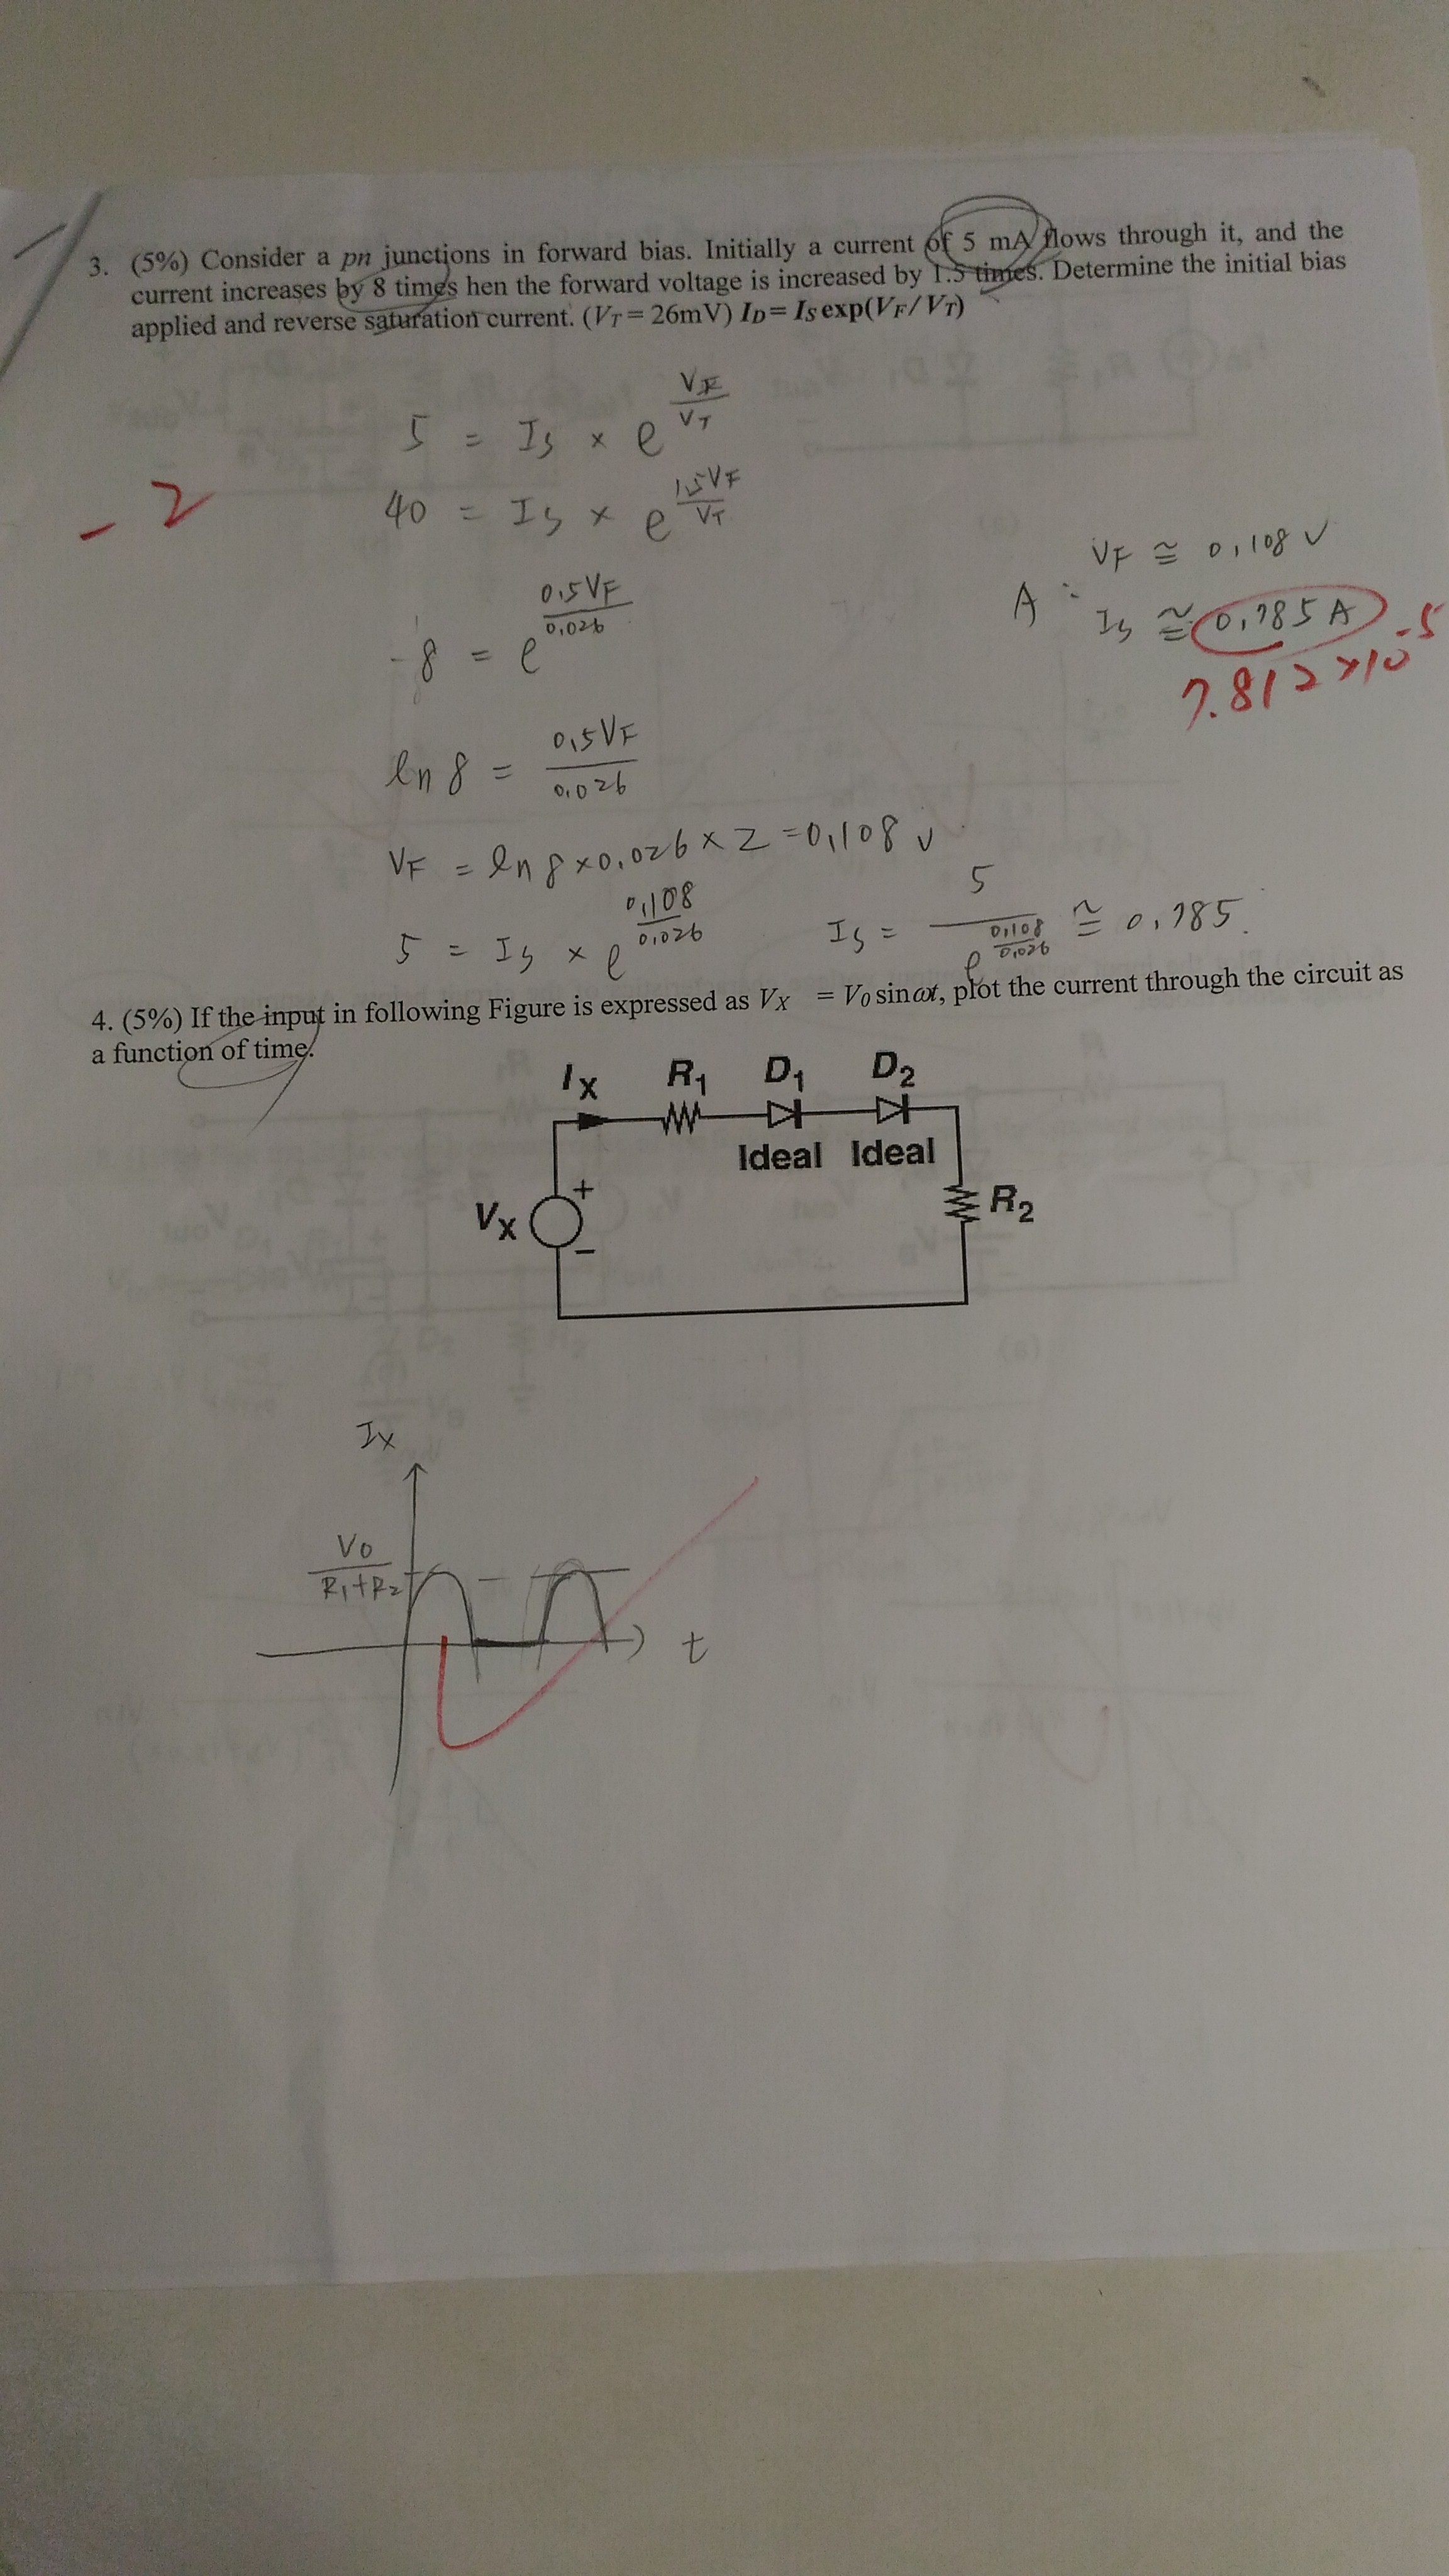 3. (5%) Consider a pn junctions in forward bias. Initially a current of 5 mA flows through it, and the
current increases by 8 times hen the forward voltage is increased by 1.5 times. Determine the initial bias
applied and reverse saturation current. (VT = 26mV) ID = IS exp(VF / VT)
5 = Is × e^(VF/VT)
- 2
40 = Is × e^(1.5VF/VT)
8 = e^(0.5VF/0.026)
A : VF ≅ 0.108 V
Is ≅ 0.785 A
7.812 × 10^-5
ln 8 = 0.5VF/0.026
VF = ln 8 × 0.026 × 2 = 0.108 V
5 = Is × e^(0.108/0.026)
Is = 5/e^(0.108/0.026) ≅ 0.785.
4. (5%) If the input in following Figure is expressed as VX = V0 sinωt, plot the current through the circuit as
a function of time.
IX R1 D1 D2
Ideal Ideal
+
VX
R2
−
Ix
V0/(R1+R2)
t